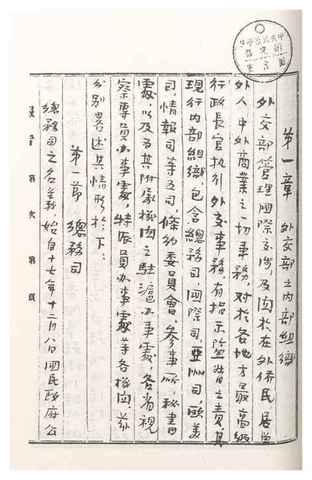 第一章 外交部之内部組織
外交部管理國際交涉及関於在外僑民居留
外人中外商業之一切事務，対於各地方最高級
行政長官執行外交事務，有指示監督之責其
現行内部組織，包含總務司，國際司，亞洲司，歐美
司，情報司等五司，條約委員會，參事厛，秘書
處，以及其附屬機関之駐滬办事處，各省視
察專員办事處，特派員办事處等各機関，茲
分別畧述其情形於下：
第一節 總務司
總務司之名義，始自十七年十二月八日國民政府公